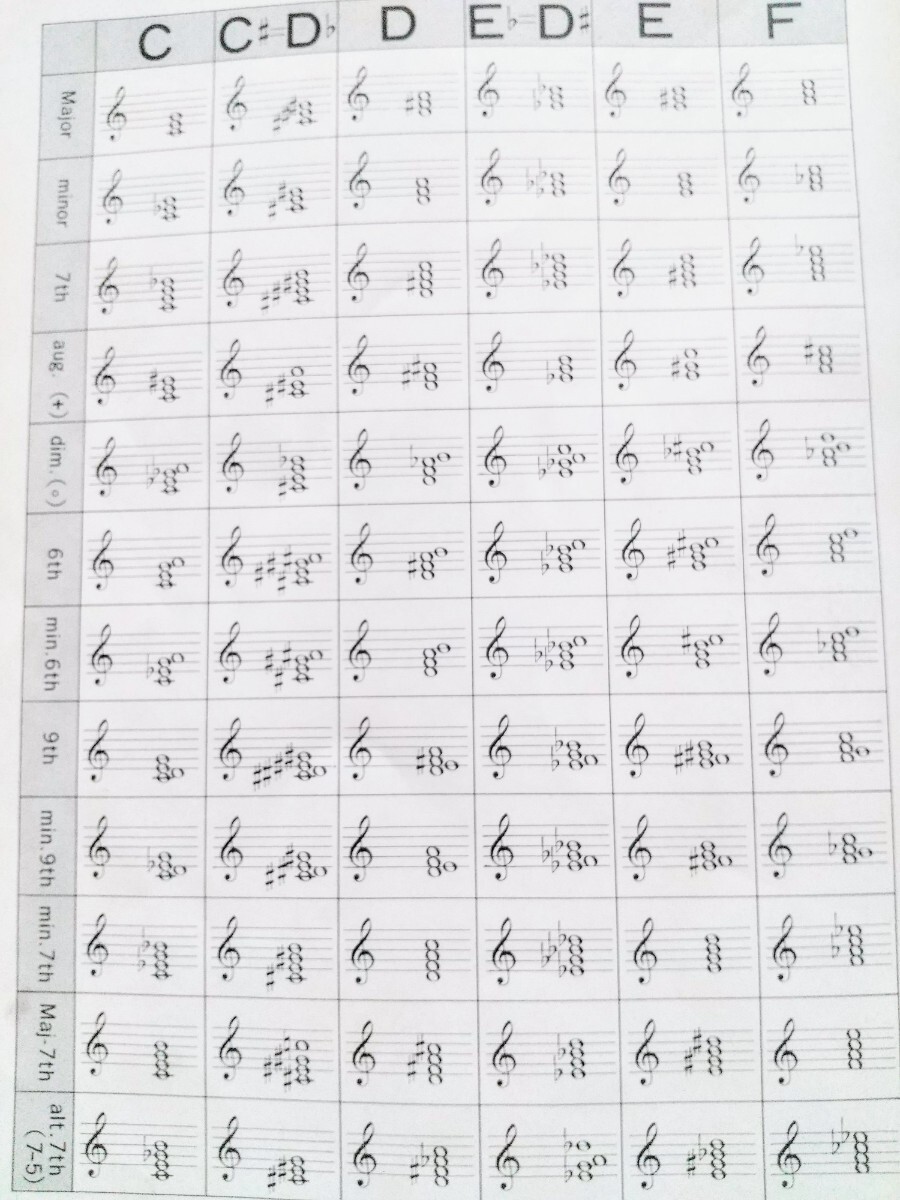 C C♯=D♭ D E♭=D♯ E F
Major
minor
7th
aug. (+)
dim. (○)
6th
min. 6th
9th
min. 9th
min. 7th
Maj-7th
alt. 7th
(7-5)